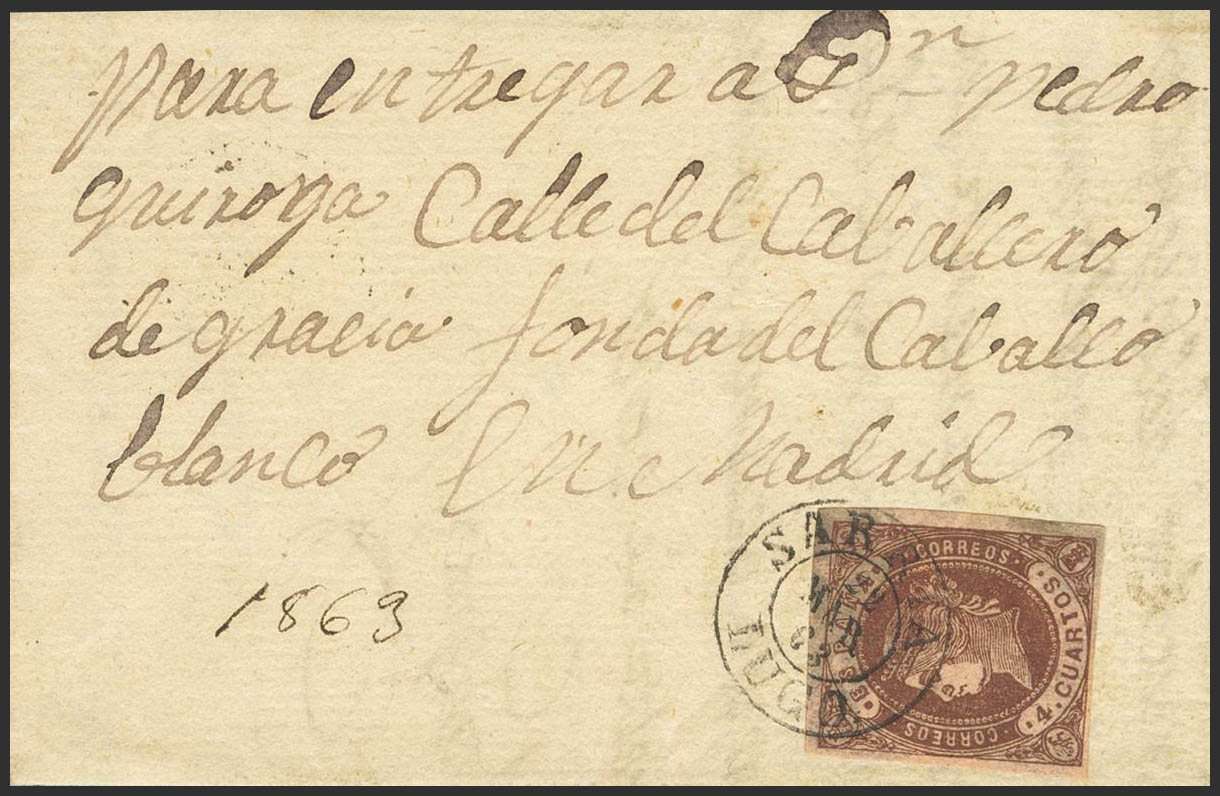 para entregar a Dn pedro
quiroga Calle del Caballero
de gracia fonda del Caballo
blanco En Madrid
1863
SARRIA
22
MAR
63
LUGO
CORREOS
4 CUARTOS
CORREOS
ESPAÑA